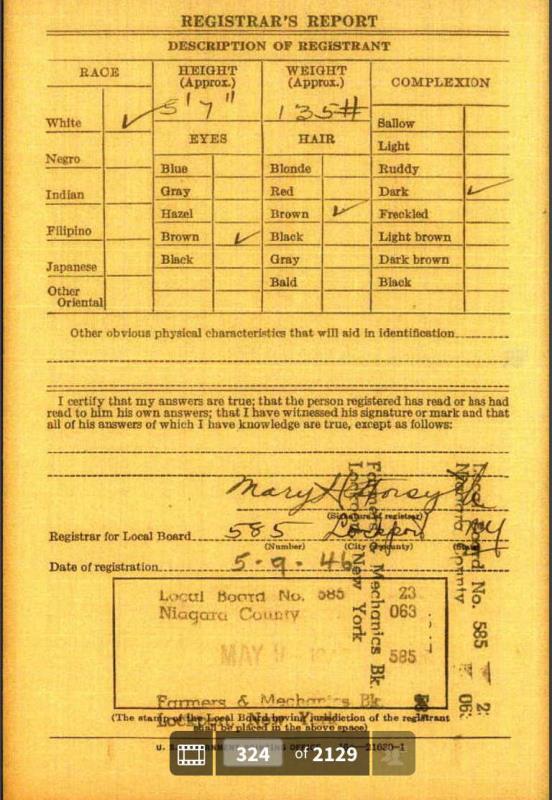 REGISTRAR'S REPORT
DESCRIPTION OF REGISTRANT
RACE
HEIGHT
(Approx.)
WEIGHT
(Approx.)
COMPLEXION
5'7"
135#
White ✓
Negro
Indian
Filipino
Japanese
Other
Oriental
EYES
Blue
Gray
Hazel
Brown ✓
Black
HAIR
Blonde
Red
Brown ✓
Black
Gray
Bald
Sallow
Light
Ruddy
Dark ✓
Freckled
Light brown
Dark brown
Black
Other obvious physical characteristics that will aid in identification
I certify that my answers are true; that the person registered has read or has had
read to him his own answers; that I have witnessed his signature or mark and that
all of his answers of which I have knowledge are true, except as follows:
Mary
(Signature of registrar)
Registrar for Local Board 585 Lockport NY
(Number) (City or county) (State)
Date of registration 5-9-46
Local Board No. 585 23
Niagara County 063
MAY 9 585
Farmers & Mechanics Bk.
Lockport, New York
(The stamp of the Local Board having jurisdiction of the registrant
shall be placed in the above space)
Local Board No. 585
Niagara County
Farmers & Mechanics Bk.
Lockport New York
U. S. GOVERNMENT PRINTING OFFICE 16—21630-1
324 of 2129